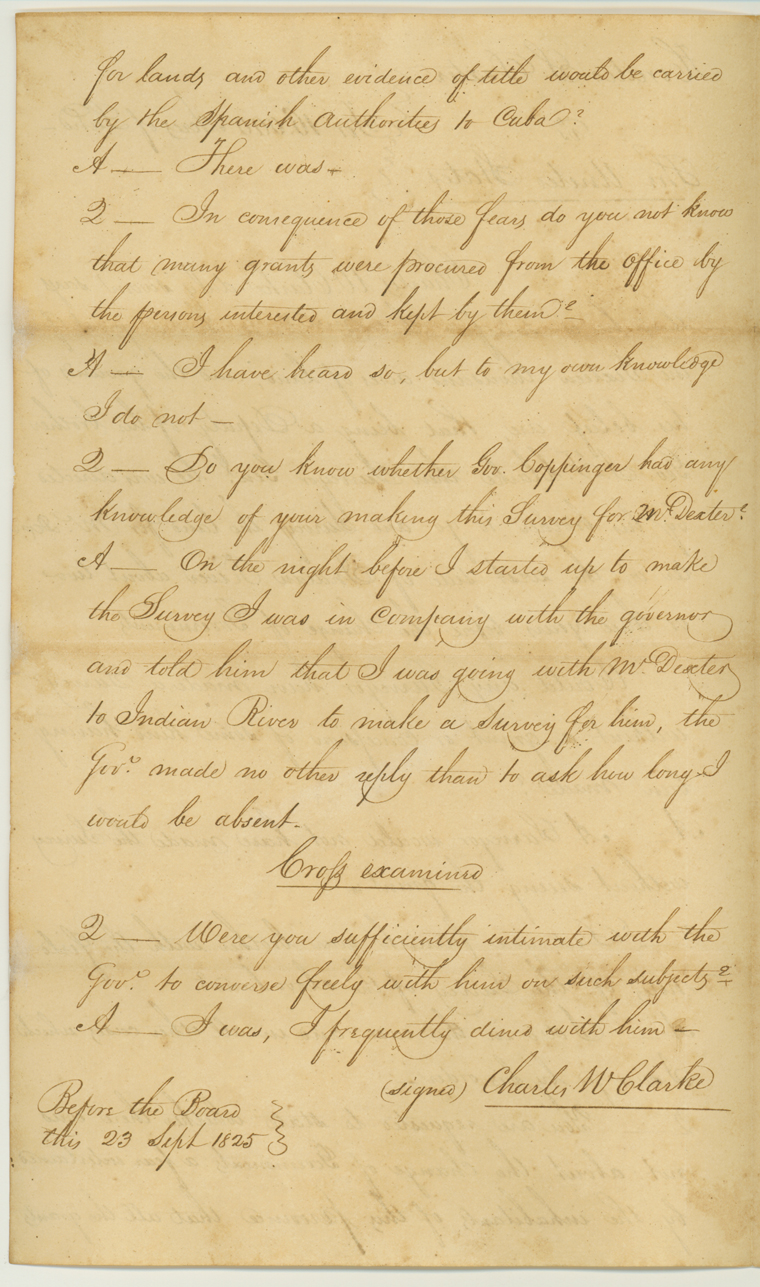 for lands and other evidence of title would be carried
by the Spanish Authorities to Cuba?
A — There was —
Q — In consequence of those fears do you not know
that many grants were procured from the office by
the persons interested and kept by them?
A — I have heard so, but to my own knowledge
I do not —
Q — Do you know whether Gov. Coppinger had any
knowledge of your making this Survey for Mr. Dexter?
A — On the night before I started up to make
the Survey I was in company with the governor
and told him that I was going with Mr. Dexter
to Indian River to make a Survey for him, the
Govr. made no other reply than to ask how long I
would be absent.
Cross examined
Q — Were you sufficiently intimate with the
Govr. to converse freely with him on such subjects?
A — I was, I frequently dined with him —
(signed) Charles W Clarke
Before the Board
this 23 Sept 1825